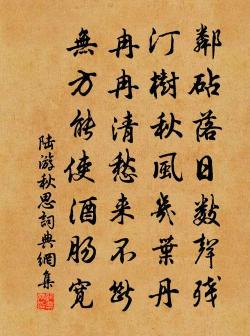 鄰砧落日數聲殘
汀樹秋風幾葉丹
冉冉清愁来不斷
無方能使酒腸寬
陸游秋思詞典網集